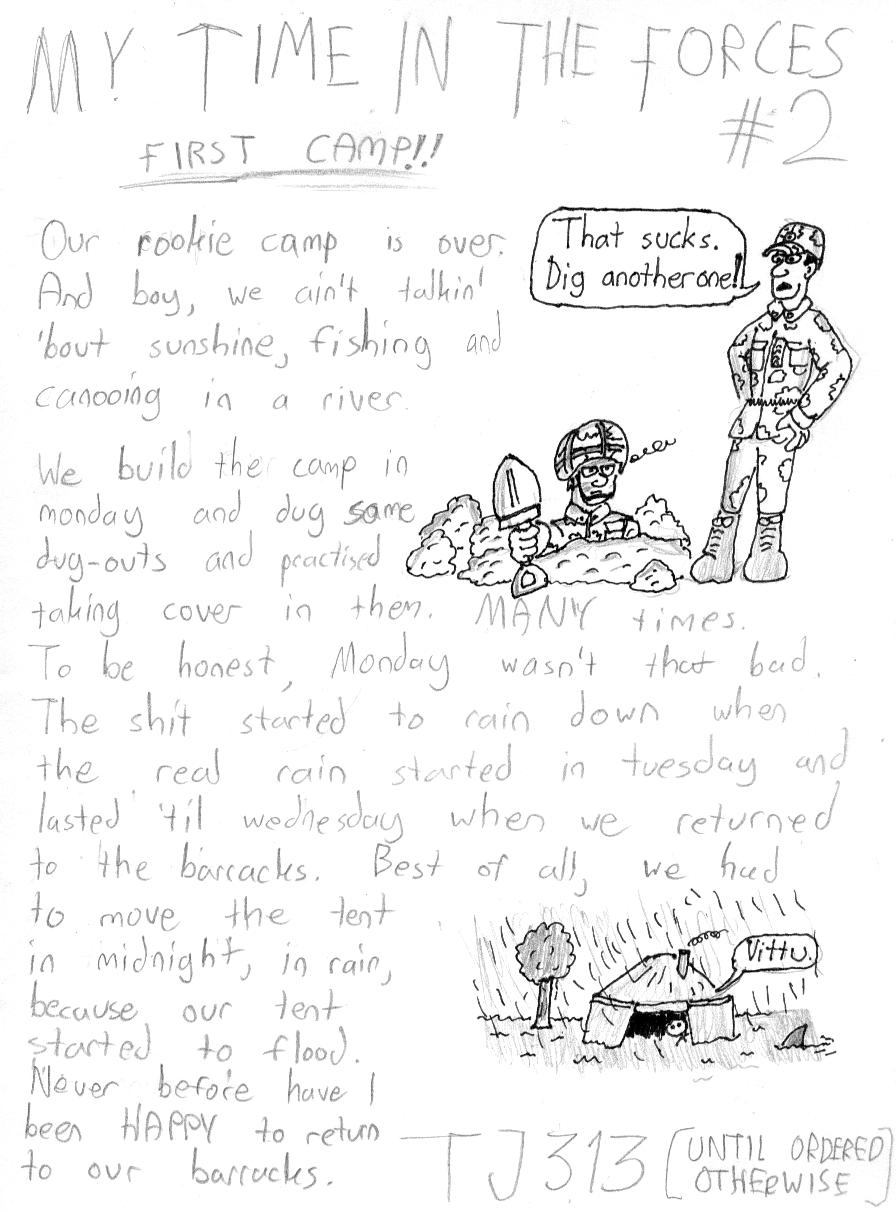 MY TIME IN THE FORCES
#2
FIRST CAMP!!
Our rookie camp is over.
And boy, we ain't talkin'
'bout sunshine, fishing and
canooing in a river.
That sucks.
Dig another one!!
We build the camp in
monday and dug some
dug-outs and practised
taking cover in them. MANY times.
To be honest, Monday wasn't that bad.
The shit started to rain down when
the real rain started in tuesday and
lasted 'til wednesday when we returned
to the barracks. Best of all, we had
to move the tent
in midnight, in rain,
because our tent
started to flood.
Never before have I
been HAPPY to return
to our barracks.
Vittu.
TJ 313 [UNTIL ORDERED
OTHERWISE]